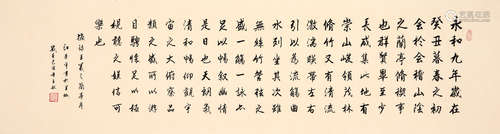 永和九年歲在
癸丑暮春之初
會於會稽山陰
之蘭亭脩禊事
也群賢畢至少
長咸集此地有
崇山峻領茂林
脩竹又有清流
激湍暎帶左右
引以為流觴曲
水列坐其次雖
無絲竹管弦之
盛一觴一詠亦
足以暢敘幽情
是日也天朗氣
清
宙之大俯察品
類之盛所以遊
目騁懷足以極
視聽之娛信可
樂也
王羲之蘭亭序